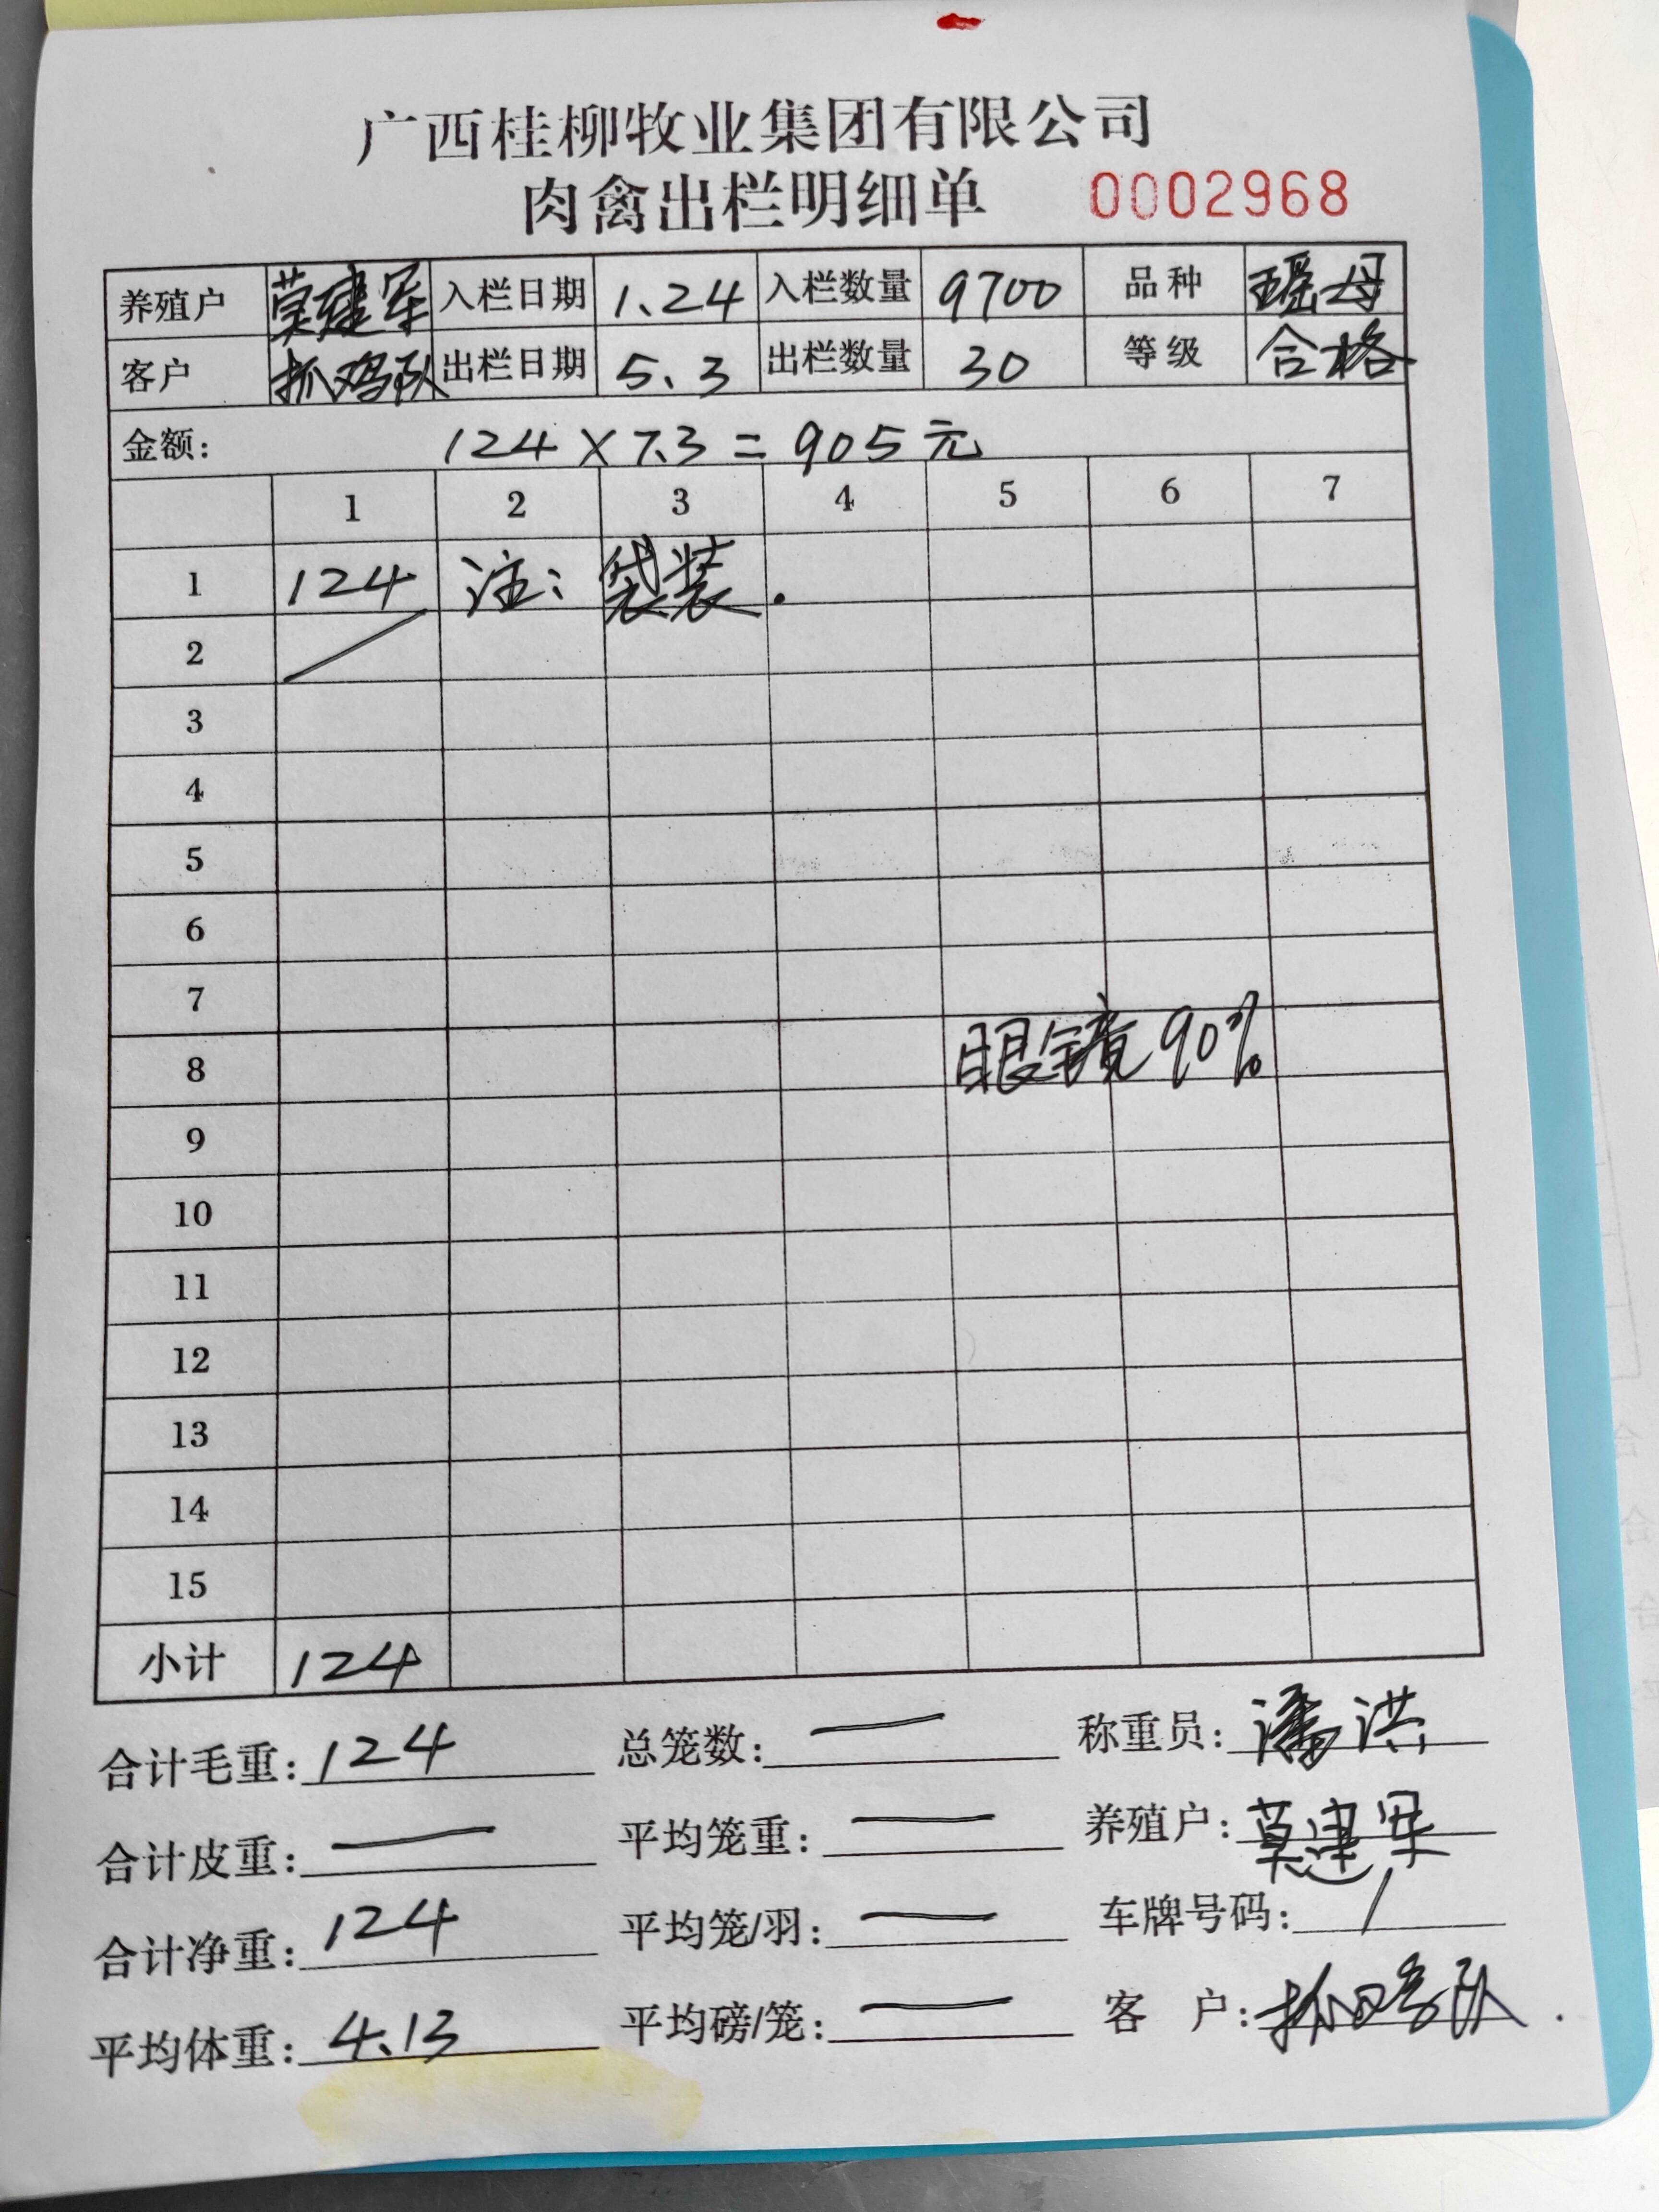 广西桂柳牧业集团有限公司
肉禽出栏明细单 0002968
养殖户 莫建军 入栏日期 1.24 入栏数量 9700 品种 瑶母
客户 抓鸡队 出栏日期 5.3 出栏数量 30 等级 合格
金额: 124×7.3=905元
1 2 3 4 5 6 7
1 124 注: 袋装.
2
3
4
5
6
7
8 眼镜90%
9
10
11
12
13
14
15
小计 124
合计毛重: 124 总笼数: — 称重员: 潘洪
合计皮重: — 平均笼重: — 养殖户: 莫建军
合计净重: 124 平均笼/羽: — 车牌号码: /
平均体重: 4.13 平均磅/笼: — 客户: 抓鸡队.